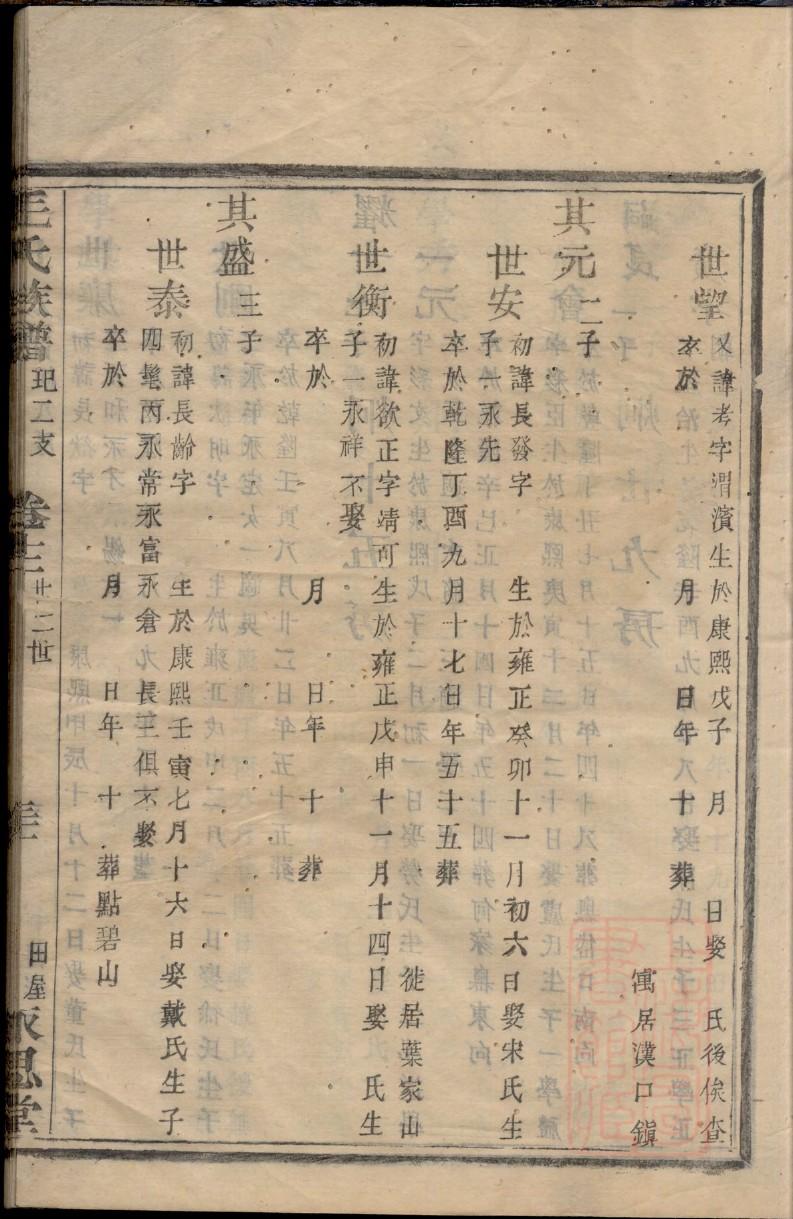 世望 又諱考字渭濱生於康熙戊子 月 日娶 氏後俟查
卒於 月 日年 十 葬
寓居漢口鎮
其元 二子
世安 初諱長發字 生於雍正癸卯十一月初六日娶宋氏生
子一永先
卒於乾隆丁酉九月十七日年五十五葬
徙居葉家山
世衡 初諱欲正字靖可生於雍正戊申十一月十四日娶 氏生
子一永祥不娶
卒於 月 日年 十 葬
其盛 三子
世泰 初諱長齡字 生於康熙壬寅七月十六日娶戴氏生子
四髦丙永常永富永倉長三俱不娶
卒於 月 日年 十 葬點碧山
王氏族譜 玘二支 卷 廿二世 田渥 永思堂